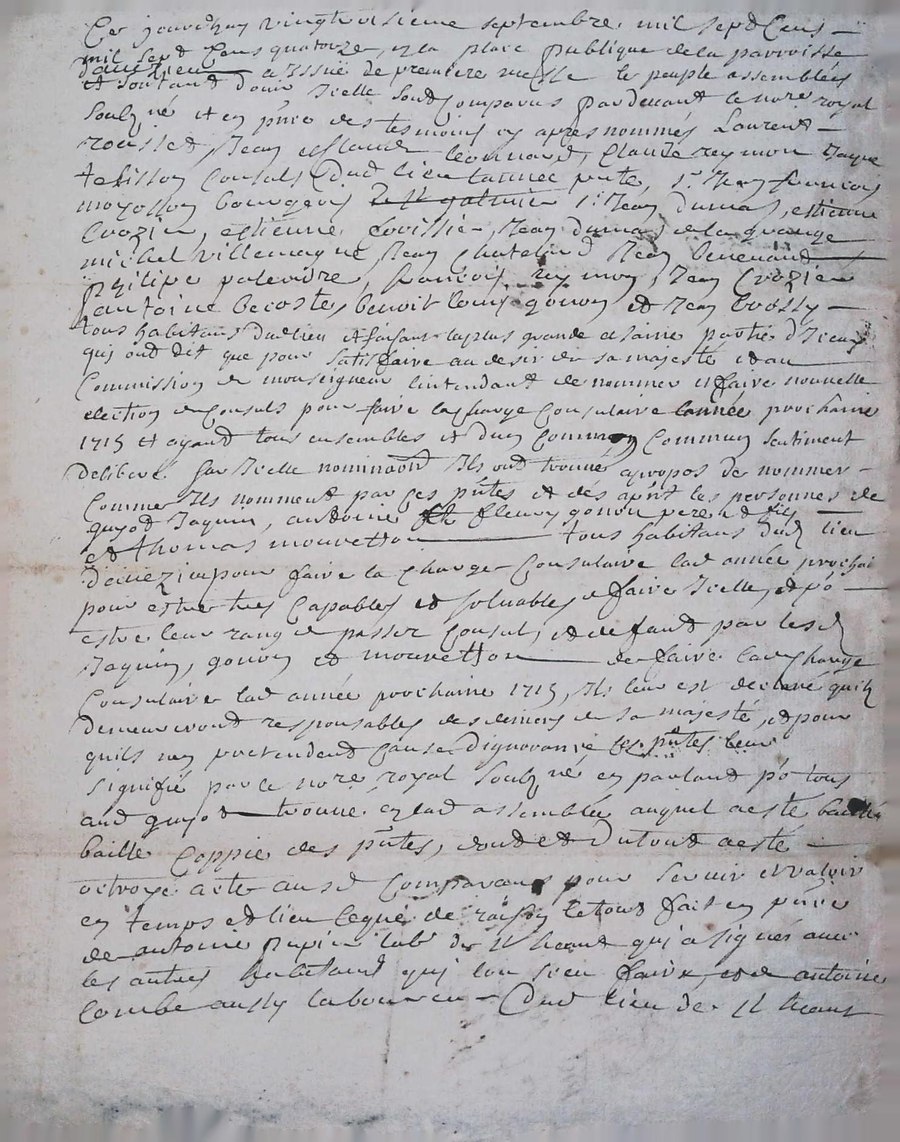 Ce jourdhuy vingtroisieme septembre mil sept Cens —
mil sept Cens quatorze, en la place publique de la parroisse
d'auezieu a Issuë de premiere messe le peuple assemblées
et sortant d'ouir Icelle sont Comparus pardevant le nore royal
soubz né et en pnce des tesmoins cy apres nommés Laurent —
rousset, Jean Leonnard, Claude reymon
Consuls dud lieu lannée pnte, sr Jean francois
moyosson bourgeois sr Jean dumas, estienne
Crozier, estienne Jean dumas de la grange
michel villemagne, Jean Chatelard Jean benevand
philipe paleodre, francois reymon, Jean Crozier
antoine becoste, benoit Louis gonon et Jean brossy —
tous habitans dud lieu et faisant la plus grande et saine partie d'Iceux
qui ont dit que pour satisfaire au desir de sa majesté et au
Commission de monseigneur lintendant de nommer et faire nouvelle
election de Consuls pour faire la charge Consulaire lannée prochaine
1715 et ayand tous ensembles et dun Commun Commun sentiment
deliberé sur Icelle nominaon Ils ont trouvé apropos de nommer —
Comme Ils nomment par ces pntes et dés apnt les personnes de
guyot Jaquin, antoine fleury gonon pere et fils
et thomas mouvetton tous habitans dud lieu
d'auezieu pour faire la Charge Consulaire lad année prochai
pour estre tres Capables et soluables de faire Icelle, et po —
estre leur rang de passer Consul, et deffaut par lesd
Jaquin, gonon et mouvetton de faire lad Charge
Consulaire lad année prochaine 1715, Ils leur est declaré quilz
demeureront responsables des deniers de sa majesté, et pour
quils nen pretendent Cause dignorance les pntes leur
signifié par le nore royal soubz né en parland po tous
aud guyot trouvé en lad assemblée auquel a esté baillé
baille Coppie des pntes, dont et du tout a esté —
octroye acte ausd Comparans pour servir et valoir
en temps et lieu Ceque de raison le tout fait en pnce
de antoine papier lab de st heand qui a signés avec
les autres habitand qui lon sceu faire et de antoine
Combe aussy laboureur — dud lieu de st heand